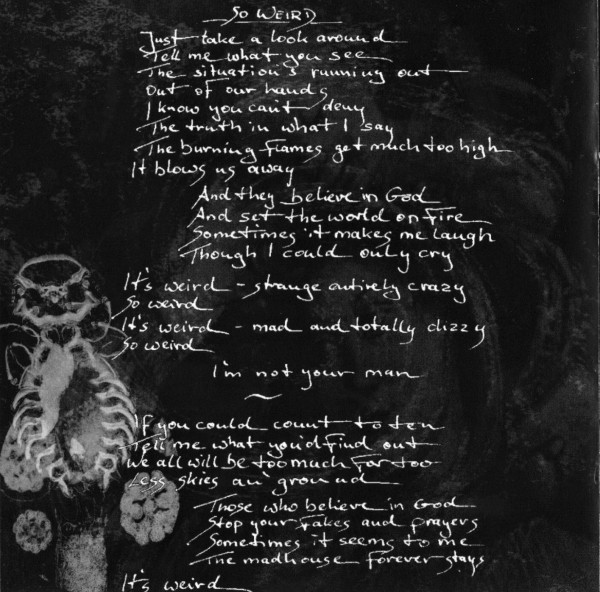 SO WEIRD
Just take a look around
Tell me what you see
The situation's running out
Out of our hands
I know you can't deny
The truth in what I say
The burning flames get much too high
It blows us away
And they believe in God
And set the world on fire
Sometimes it makes me laugh
Though I could only cry
It's weird - strange entirely crazy
So weird
It's weird - mad and totally dizzy
So weird
I'm not your man
~
If you could count to ten
Tell me what you'd find out
We all will be too much for too
Less skies an' ground
Those who believe in God
Stop your fakes and prayers
Sometimes it seems to me
The madhouse forever stays
It's weird